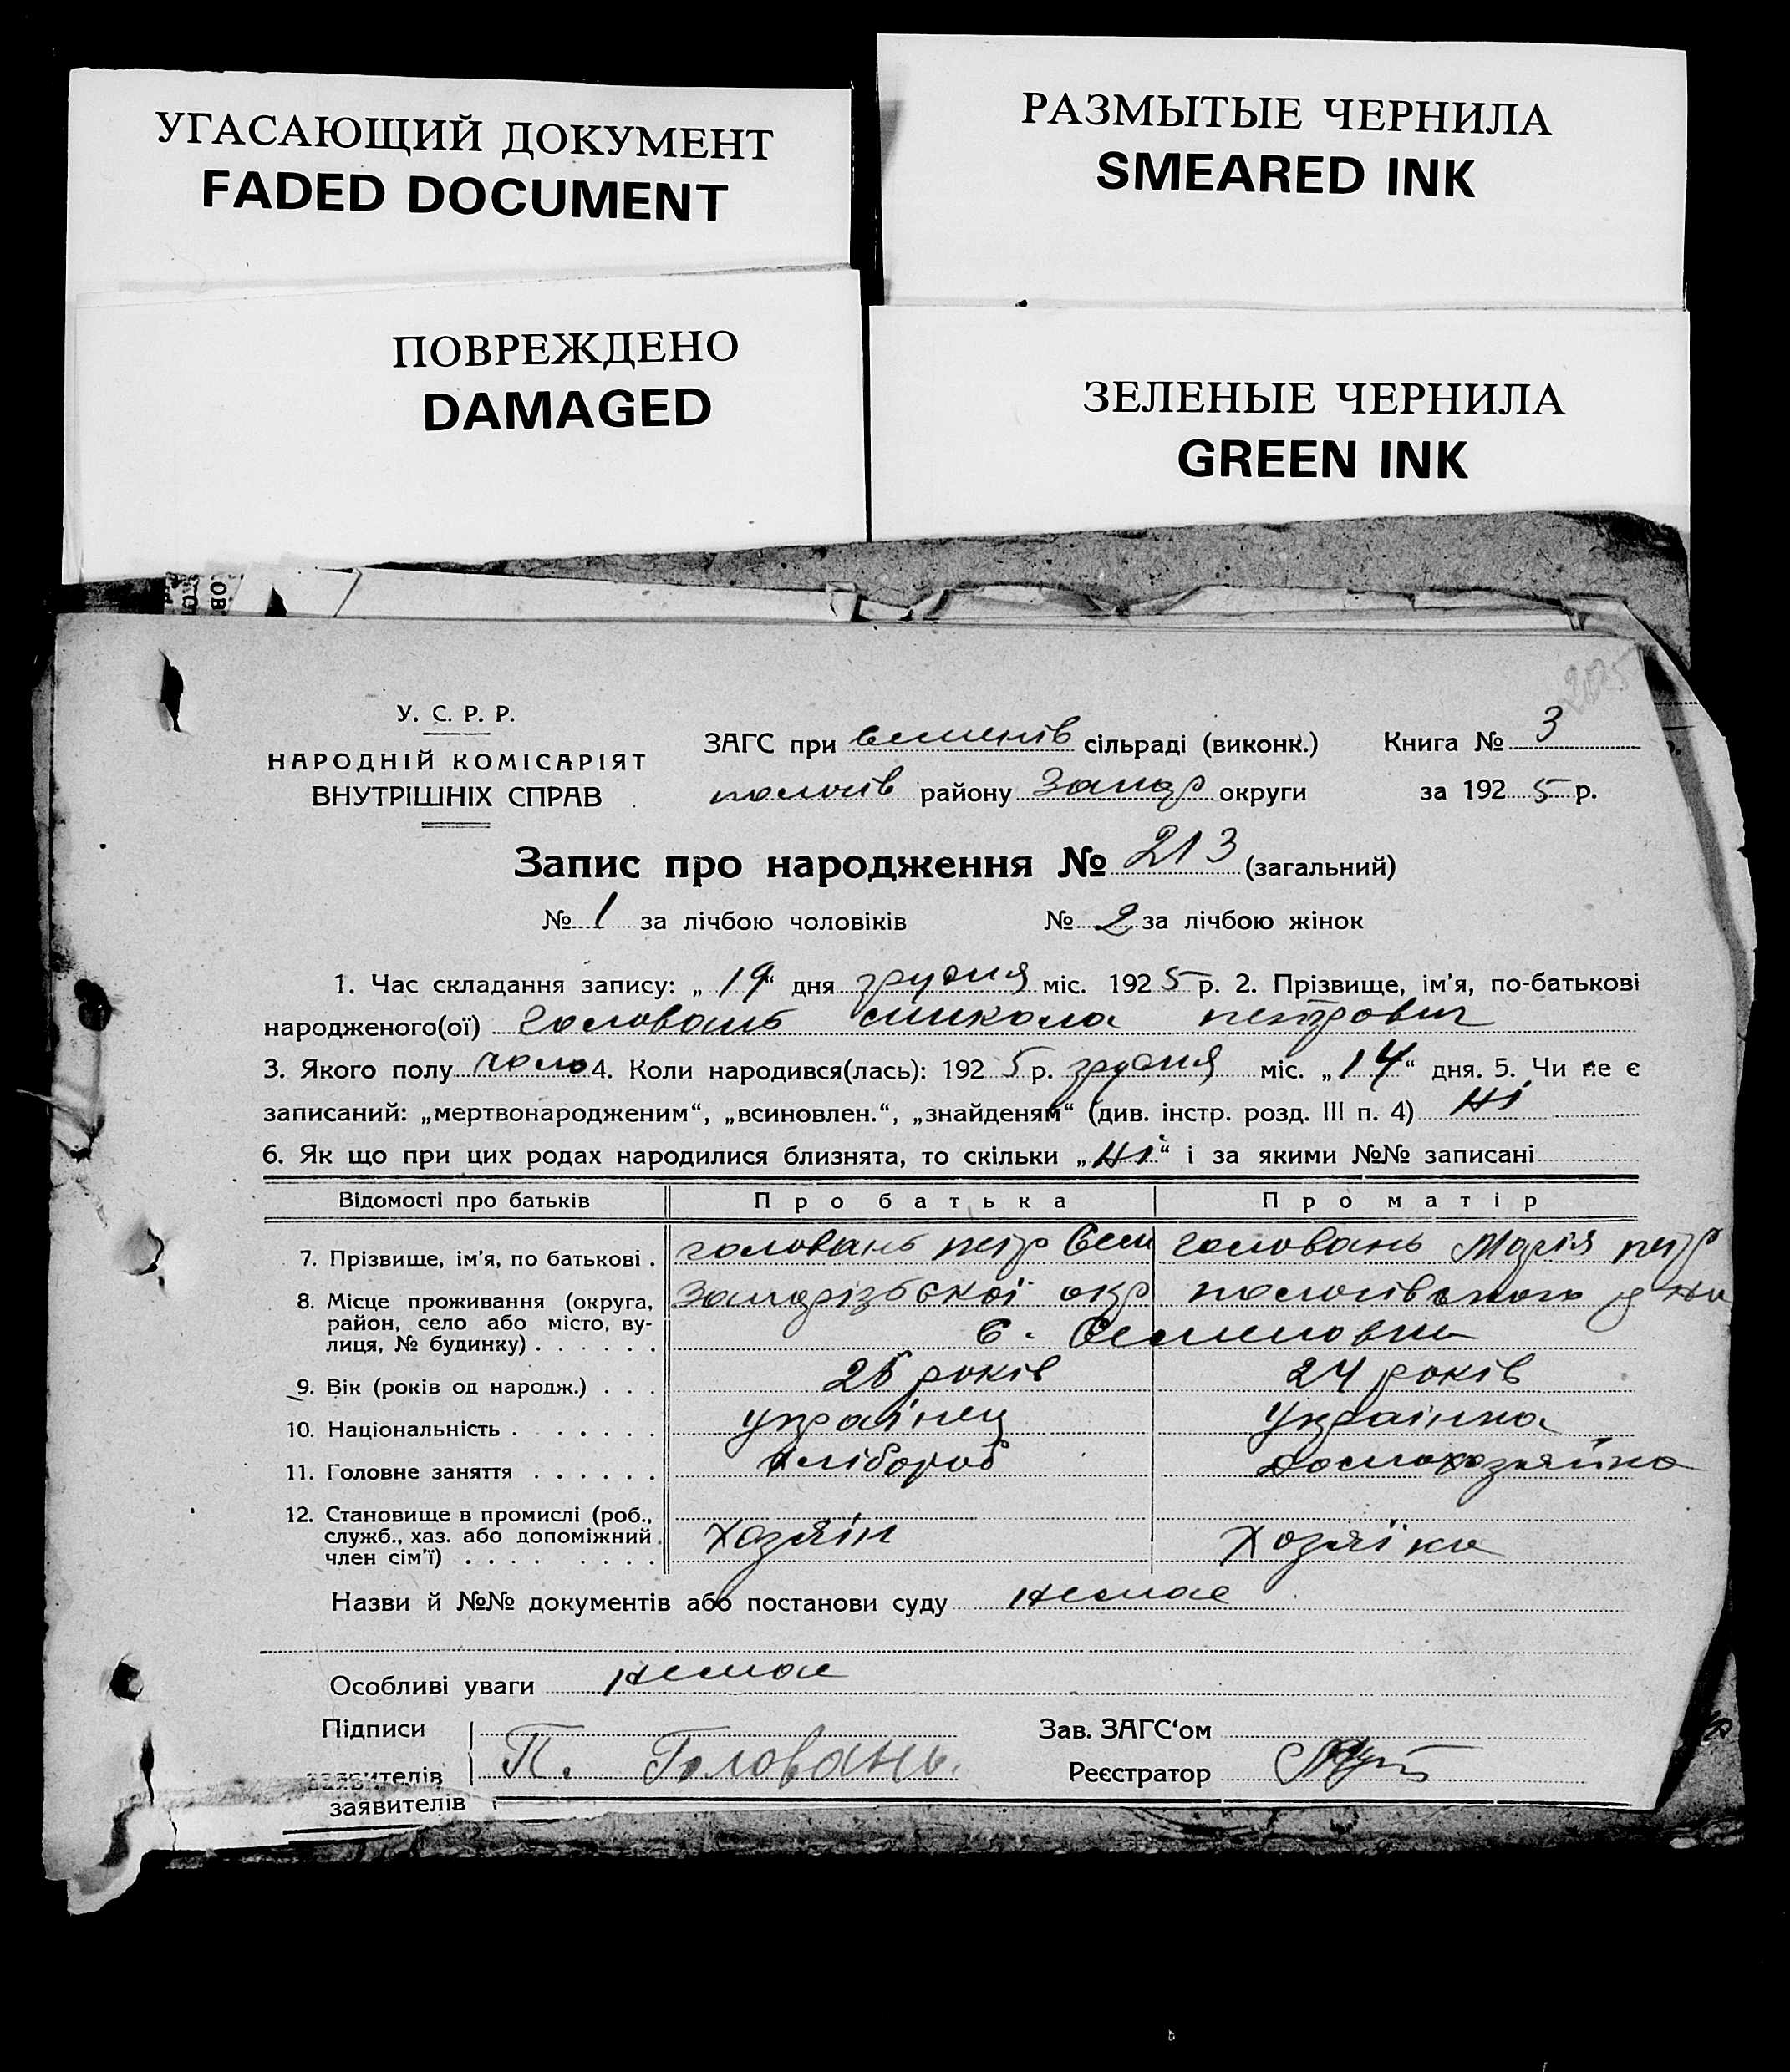 УГАСАЮЩИЙ ДОКУМЕНТ
FADED DOCUMENT
РАЗМЫТЫЕ ЧЕРНИЛА
SMEARED INK
ПОВРЕЖДЕНО
DAMAGED
ЗЕЛЕНЫЕ ЧЕРНИЛА
GREEN INK
У. С. Р. Р.
НАРОДНІЙ КОМІСАРІЯТ
ВНУТРІШНІХ СПРАВ
ЗАГС при Семенів сільраді (виконк.) Книга № 3
пологів району Запор округи за 1925 р.
Запис про народження № 213 (загальний)
№ 1 за лічбою чоловіків № 2 за лічбою жінок
1. Час складання запису: „19“ дня грудня міс. 1925 р. 2. Прізвище, ім’я, по-батькові
народженого(ої) Головань микола петрович
3. Якого полу чоло 4. Коли народився(лась): 1925 р. грудня міс. „14“ дня. 5. Чи не є
записаний: „мертвонародженим“, „всиновлен.“, „знайденям“ (див. інстр. розд. III п. 4) Ні
6. Як що при цих родах народилися близнята, то скільки „Ні“ і за якими №№ записані
Відомості про батьків Про батька Про матір
7. Прізвище, ім’я, по батькові . головань петр Сем головань Марія петр
8. Місце проживання (округа, район, село або місто, вулиця, № будинку) . . . . . . Запорізської окр пологівського р-на
с. Семеновка
9. Вік (років од народж.) . . . 25 років 24 років
10. Національність . . . . . . . українец українка
11. Головне заняття . . . . . . хлібороб домохозяйка
12. Становище в промислі (роб., служб., хаз. або допоміжний член сім’ї) . . . . . . . . хозяін хозяіка
Назви й №№ документів або постанови суду немае
Особливі уваги немае
Підписи Зав. ЗАГС‘ом
заявителів П. Головань. Реєстратор
заявителів